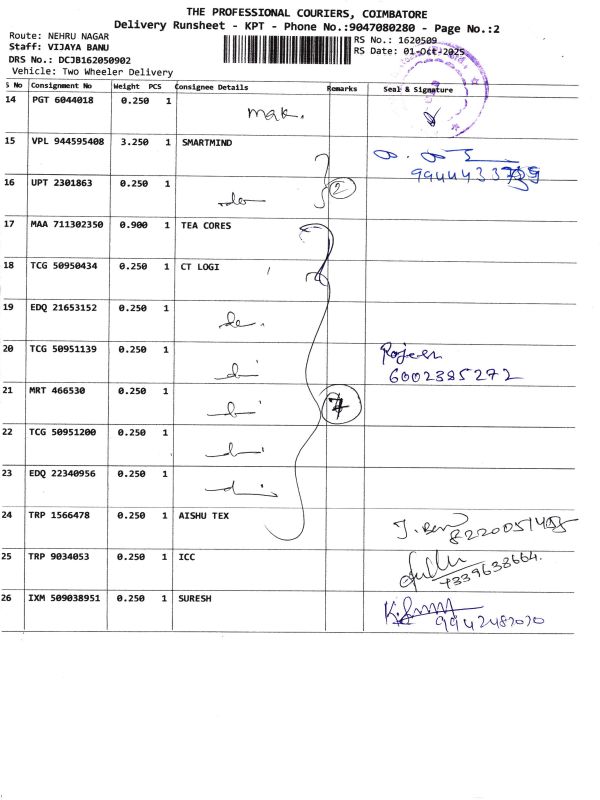 THE PROFESSIONAL COURIERS, COIMBATORE
Delivery Runsheet - KPT - Phone No.:9047080280 - Page No.:2
Route: NEHRU NAGAR
Staff: VIJAYA BANU
DRS No.: DCJB162050902
Vehicle: Two Wheeler Delivery
RS No.: 1620509
RS Date: 01-Oct-2025
S No Consignment No Weight PCS Consignee Details Remarks Seal & Signature
14 PGT 6044018 0.250 1
15 VPL 944595408 3.250 1 SMARTMIND
16 UPT 2301863 0.250 1 2
17 MAA 711302350 0.900 1 TEA CORES
18 TCG 50950434 0.250 1 CT LOGI
19 EDQ 21653152 0.250 1
20 TCG 50951139 0.250 1 Rajesh
6002385272
21 MRT 466530 0.250 1 7
22 TCG 50951200 0.250 1
23 EDQ 22340956 0.250 1
24 TRP 1566478 0.250 1 AISHU TEX
25 TRP 9034053 0.250 1 ICC
26 IXM 509038951 0.250 1 SURESH